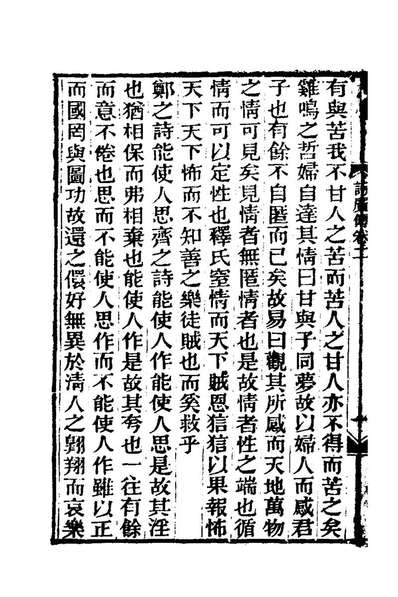 有與苦我不甘人之苦而苦人之甘人亦不得而苦之矣
雞鳴之哲婦自達其情曰甘與子同夢故以婦人而感君
子也有餘不自匿而已矣故易曰觀其所感而天地萬物
之情可見矣見情者無匿情者也是故情者性之端也循
情而可以定性也釋氏窒情而天下賊恩狺狺以果報怖
天下天下怖而不知善之樂徒賊也而奚救乎
鄭之詩能使人思齊之詩能使人作能使人思是故其淫
也猶相保而弗相棄也能使人作是故其夸也一往有餘
而意不倦也思而不能使人思作而不能使人作雖以正
而國罔與圖功故還之儇好無異於清人之翱翔而哀樂
詩廣傳卷二